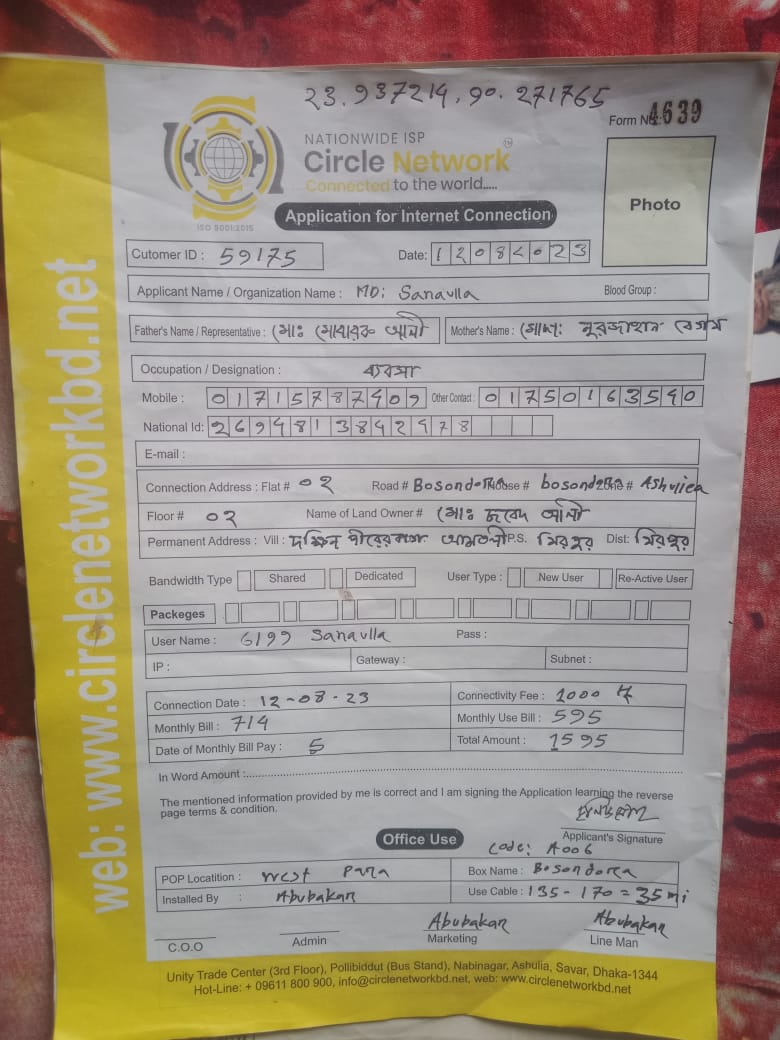 23.937214, 90.271765
Form No: 4639
NATIONWIDE ISP
Circle Network
Connected to the world.....
ISO 9001:2015
Application for Internet Connection
Photo
Cutomer ID : 59175 Date: 12082023
Applicant Name / Organization Name : MD: Sanaulla Blood Group :
Father's Name / Representative : মোঃ মোবারক আলী Mother's Name : মোসাঃ নুরজাহান বেগম
Occupation / Designation : ব্যবসা
Mobile : 01715787409 Other Contact : 01750163540
National Id: 2694813842978
E-mail :
Connection Address : Flat # 02 Road # Bosondora House # bosondora # Ashuliea
Floor # 02 Name of Land Owner # মোঃ জুবেদ আলী
Permanent Address : Vill : দক্ষিন পীরেরবাগ P.S. মিরপুর Dist: মিরপুর
Bandwidth Type Shared Dedicated User Type : New User Re-Active User
Packeges
User Name : 6199 Sanaulla Pass :
IP : Gateway : Subnet :
Connection Date : 12-08-23 Connectivity Fee : 1000
Monthly Bill : 714 Monthly Use Bill : 595
Date of Monthly Bill Pay : 5 Total Amount : 1595
In Word Amount :
The mentioned information provided by me is correct and I am signing the Application learning the reverse
page terms & condition.
Applicant's Signature
Office Use
Code: A006
POP Locatition : West Para Box Name : Bosondora
Installed By : Abubakar Use Cable : 135-170=35mi
Abubakar Abubakar
C.O.O Admin Marketing Line Man
Unity Trade Center (3rd Floor), Pollibiddut (Bus Stand), Nabinagar, Ashulia, Savar, Dhaka-1344
Hot-Line: + 09611 800 900, info@circlenetworkbd.net, web: www.circlenetworkbd.net
web: www.circlenetworkbd.net